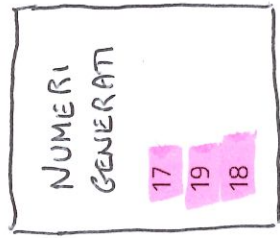 NUMERI
GENERATI
17
19
18